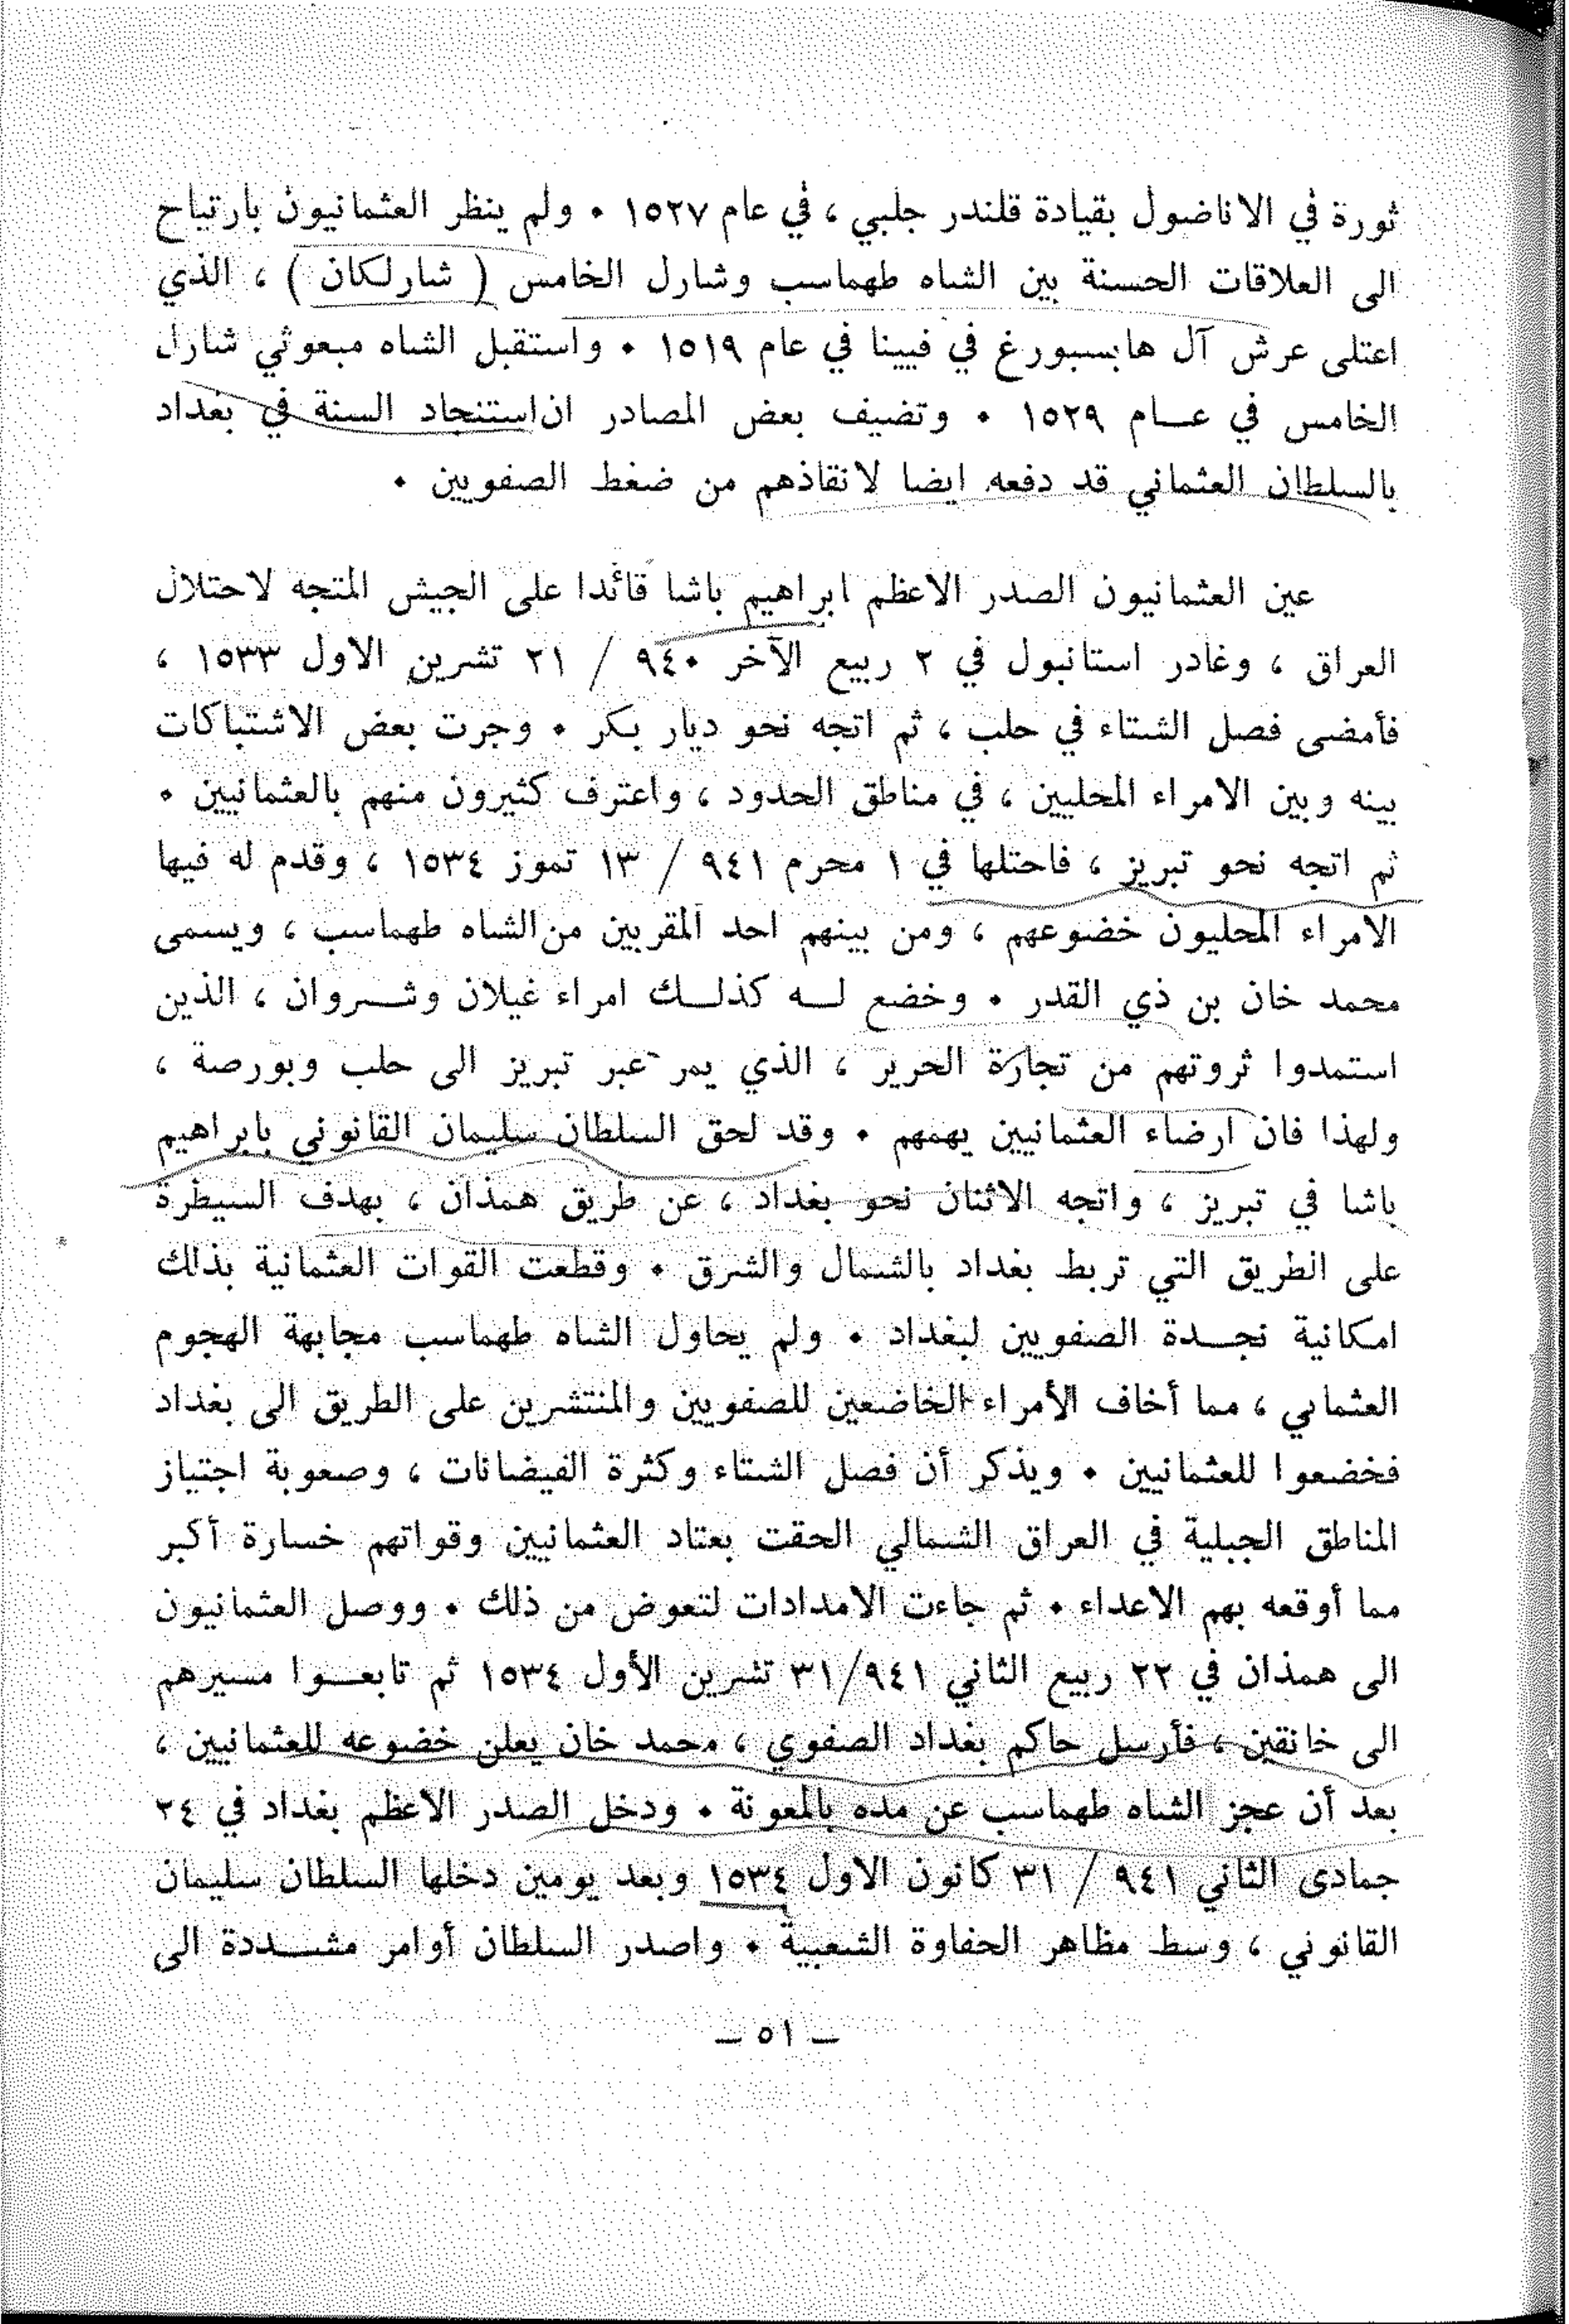 ثورة في الاناضول بقيادة قلندر جلبي ، في عام ١٥٢٧ ٠ ولم ينظر العثمانيون بارتياح
الى العلاقات الحسنة بين الشاه طهماسب وشارل الخامس ( شارلكان ) ، الذي
اعتلى عرش آل هابسبورغ في فيينا في عام ١٥١٩ ٠ واستقبل الشاه مبعوثي شارل
الخامس في عـــام ١٥٢٩ ٠ وتضيف بعض المصادر ان استنجاد السنة في بغداد
بالسلطان العثماني قد دفعه ايضا لانقاذهم من ضغط الصفويين ٠
عين العثمانيون الصدر الاعظم ابراهيم باشا قائدا على الجيش المتجه لاحتلال
العراق ، وغادر استانبول في ٢ ربيع الآخر ٩٤٠ / ٢١ تشرين الاول ١٥٣٣ ،
فأمضى فصل الشتاء في حلب ، ثم اتجه نحو ديار بكر ٠ وجرت بعض الاشتباكات
بينه وبين الامراء المحليين ، في مناطق الحدود ، واعترف كثيرون منهم بالعثمانيين ٠
ثم اتجه نحو تبريز ، فاحتلها في ١ محرم ٩٤١ / ١٣ تموز ١٥٣٤ ، وقدم له فيها
الامراء المحليون خضوعهم ، ومن بينهم احد المقربين من الشاه طهماسب ، ويسمى
محمد خان بن ذي القدر ٠ وخضع لـــه كذلـــك امراء غيلان وشـــروان ، الذين
استمدوا ثروتهم من تجارة الحرير ، الذي يمر عبر تبريز الى حلب وبورصة ،
ولهذا فان ارضاء العثمانيين يهمهم ٠ وقد لحق السلطان سليمان القانوني بابراهيم
باشا في تبريز ، واتجه الاثنان نحو بغداد ، عن طريق همذان ، بهدف السيطرة
على الطريق التي تربط بغداد بالشمال والشرق ٠ وقطعت القوات العثمانية بذلك
امكانية نجـــدة الصفويين لبغداد ٠ ولم يحاول الشاه طهماسب مجابهة الهجوم
العثماني ، مما أخاف الأمراء الخاضعين للصفويين والمنتشرين على الطريق الى بغداد
فخضعوا للعثمانيين ٠ ويذكر أن فصل الشتاء وكثرة الفيضانات ، وصعوبة اجتياز
المناطق الجبلية في العراق الشمالي الحقت بعتاد العثمانيين وقواتهم خسارة أكبر
مما أوقعه بهم الاعداء ٠ ثم جاءت الامدادات لتعوض من ذلك ٠ ووصل العثمانيون
الى همذان في ٢٢ ربيع الثاني ٣١/٩٤١ تشرين الأول ١٥٣٤ ثم تابعـــوا مسيرهم
الى خانقين ، فأرسل حاكم بغداد الصفوي ، محمد خان يعلن خضوعه للعثمانيين ،
بعد أن عجز الشاه طهماسب عن مده بالمعونة ٠ ودخل الصدر الاعظم بغداد في ٢٤
جمادى الثاني ٩٤١ / ٣١ كانون الاول ١٥٣٤ وبعد يومين دخلها السلطان سليمان
القانوني ، وسط مظاهر الحفاوة الشعبية ٠ واصدر السلطان أوامر مشـــددة الى
— ٥١ —